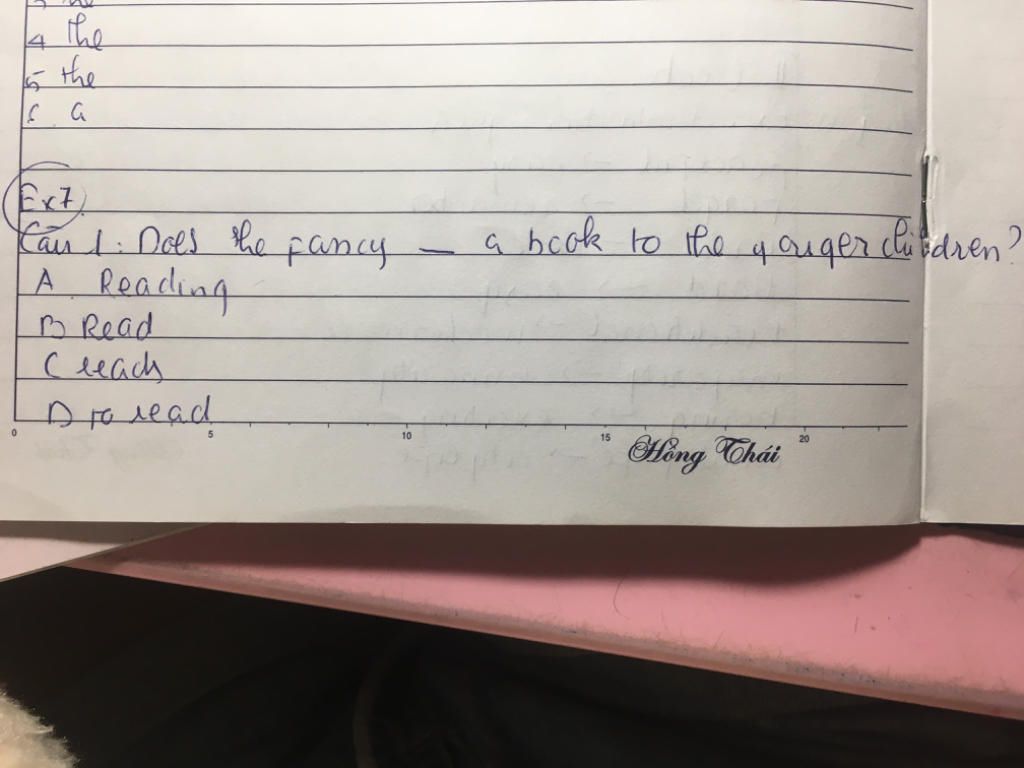 4 the
5 the
6 a
Ex7
Câu 1: Does the fancy — a book to the younger children?
A Reading
B Read
C reads
D to read
0 5 10 15 20
Hồng Thái